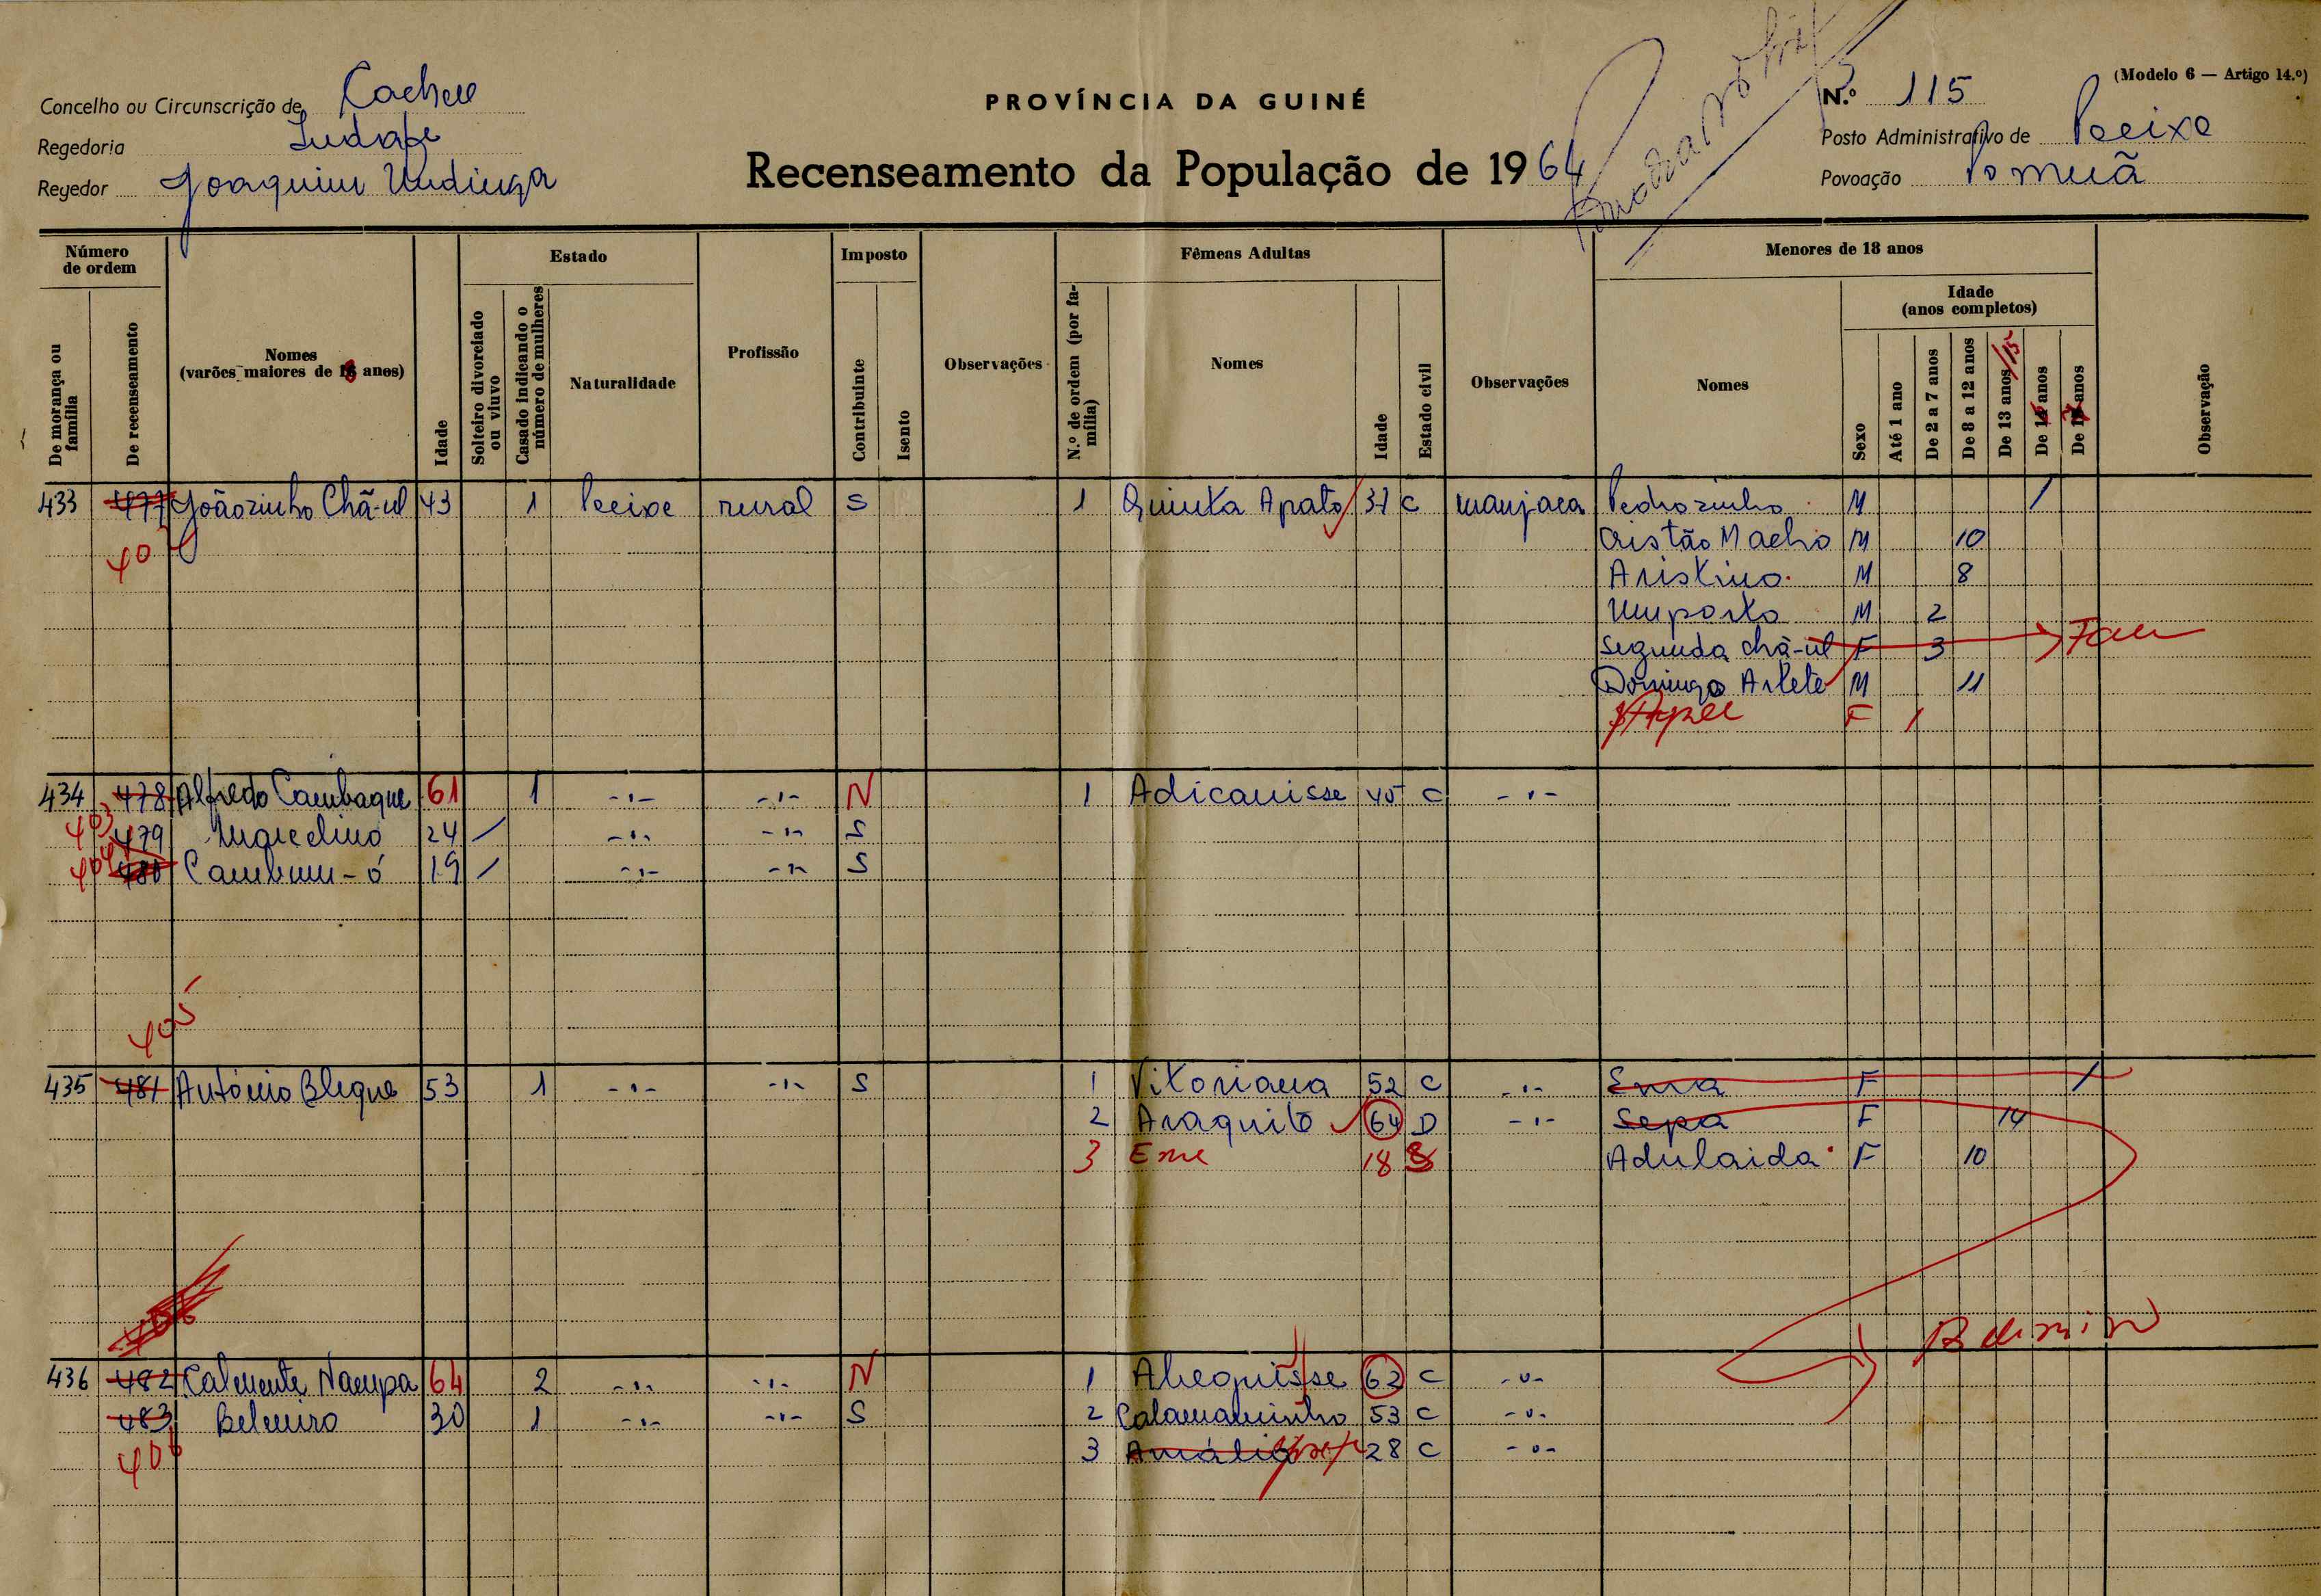 (Modelo 6 — Artigo 14.º)
Concelho ou Circunscrição de Cacheu
PROVÍNCIA DA GUINÉ
N.º 115
Regedoria
Posto Administrativo de Pecixe
Regedor Joaquim Undinga
Recenseamento da População de 1964
Povoação Pomuã
Número de ordem
Estado
Imposto
Fêmeas Adultas
Menores de 18 anos
De morança ou família
De recenseamento
Nomes (varões maiores de 18 anos)
Idade
Solteiro divorciado ou viuvo
Casado indicando o número de mulheres
Naturalidade
Profissão
Contribuinte
Isento
Observações
N.º de ordem (por família)
Nomes
Idade
Estado civil
Observações
Nomes
Sexo
Idade (anos completos)
Até 1 ano
De 2 a 7 anos
De 8 a 12 anos
De 13 anos/15
De anos
De anos
Observação
433 477 Joãozinho Chã-ul 43 1 Pecixe rural S 1 Quinta Apato 37 C manjaca Pedrozinho M /
40 Cristão Macho M 10
Aristino M 8
Umposto M 2
Segunda Chã-ul F 3
Domingo Arlete M 11
F /
434 478 Alfredo Cambaque 61 1 -"- -"- N 1 Adicanisse 45 C -"-
403 479 Marcelino 24 / -"- -"- S
404 480 Cambum-ó 19 / -"- -"- S
405
435 481 António Bleque 53 1 -"- -"- S 1 Vitoriana 52 C -"- Ema F /
2 Araquitó 64 D -"- Sepa F 14
3 Eme 18 S Adulaida F 10
406
Belmiro
436 482 Calmente Nampa 64 2 -"- -"- N 1 Alequisse 62 C -"-
483 Belmiro 30 1 -"- -"- S 2 Calamaminho 53 C -"-
406 3 Amália 28 C -"-